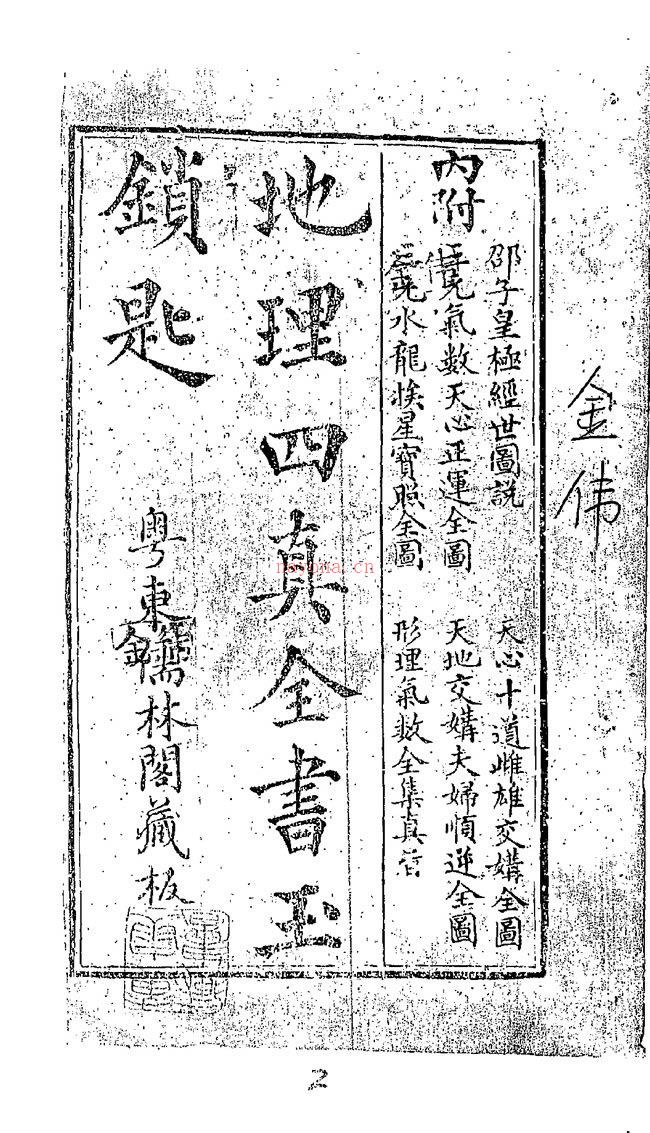 金伟
內附
邵子皇極經世圖說 天心十道雌雄交媾全圖
元氣數天心正運全圖 天地交媾夫婦順逆全圖
水龍挨星寶照全圖 形理氣數全集真
地理四真全書玉
鎖匙 粵東儒林閣藏板
nayona.cn
2